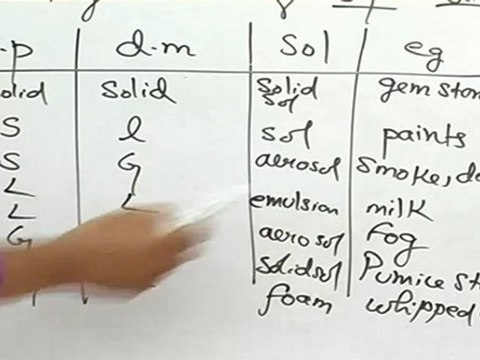 .p d.m Sol eg
olid Solid Solid Sol gem ston
S l Sol paints
S G aerosol Smoke, d
L L emulsion milk
L aerosol Fog
G Solidsol Pumice St
foam whipped